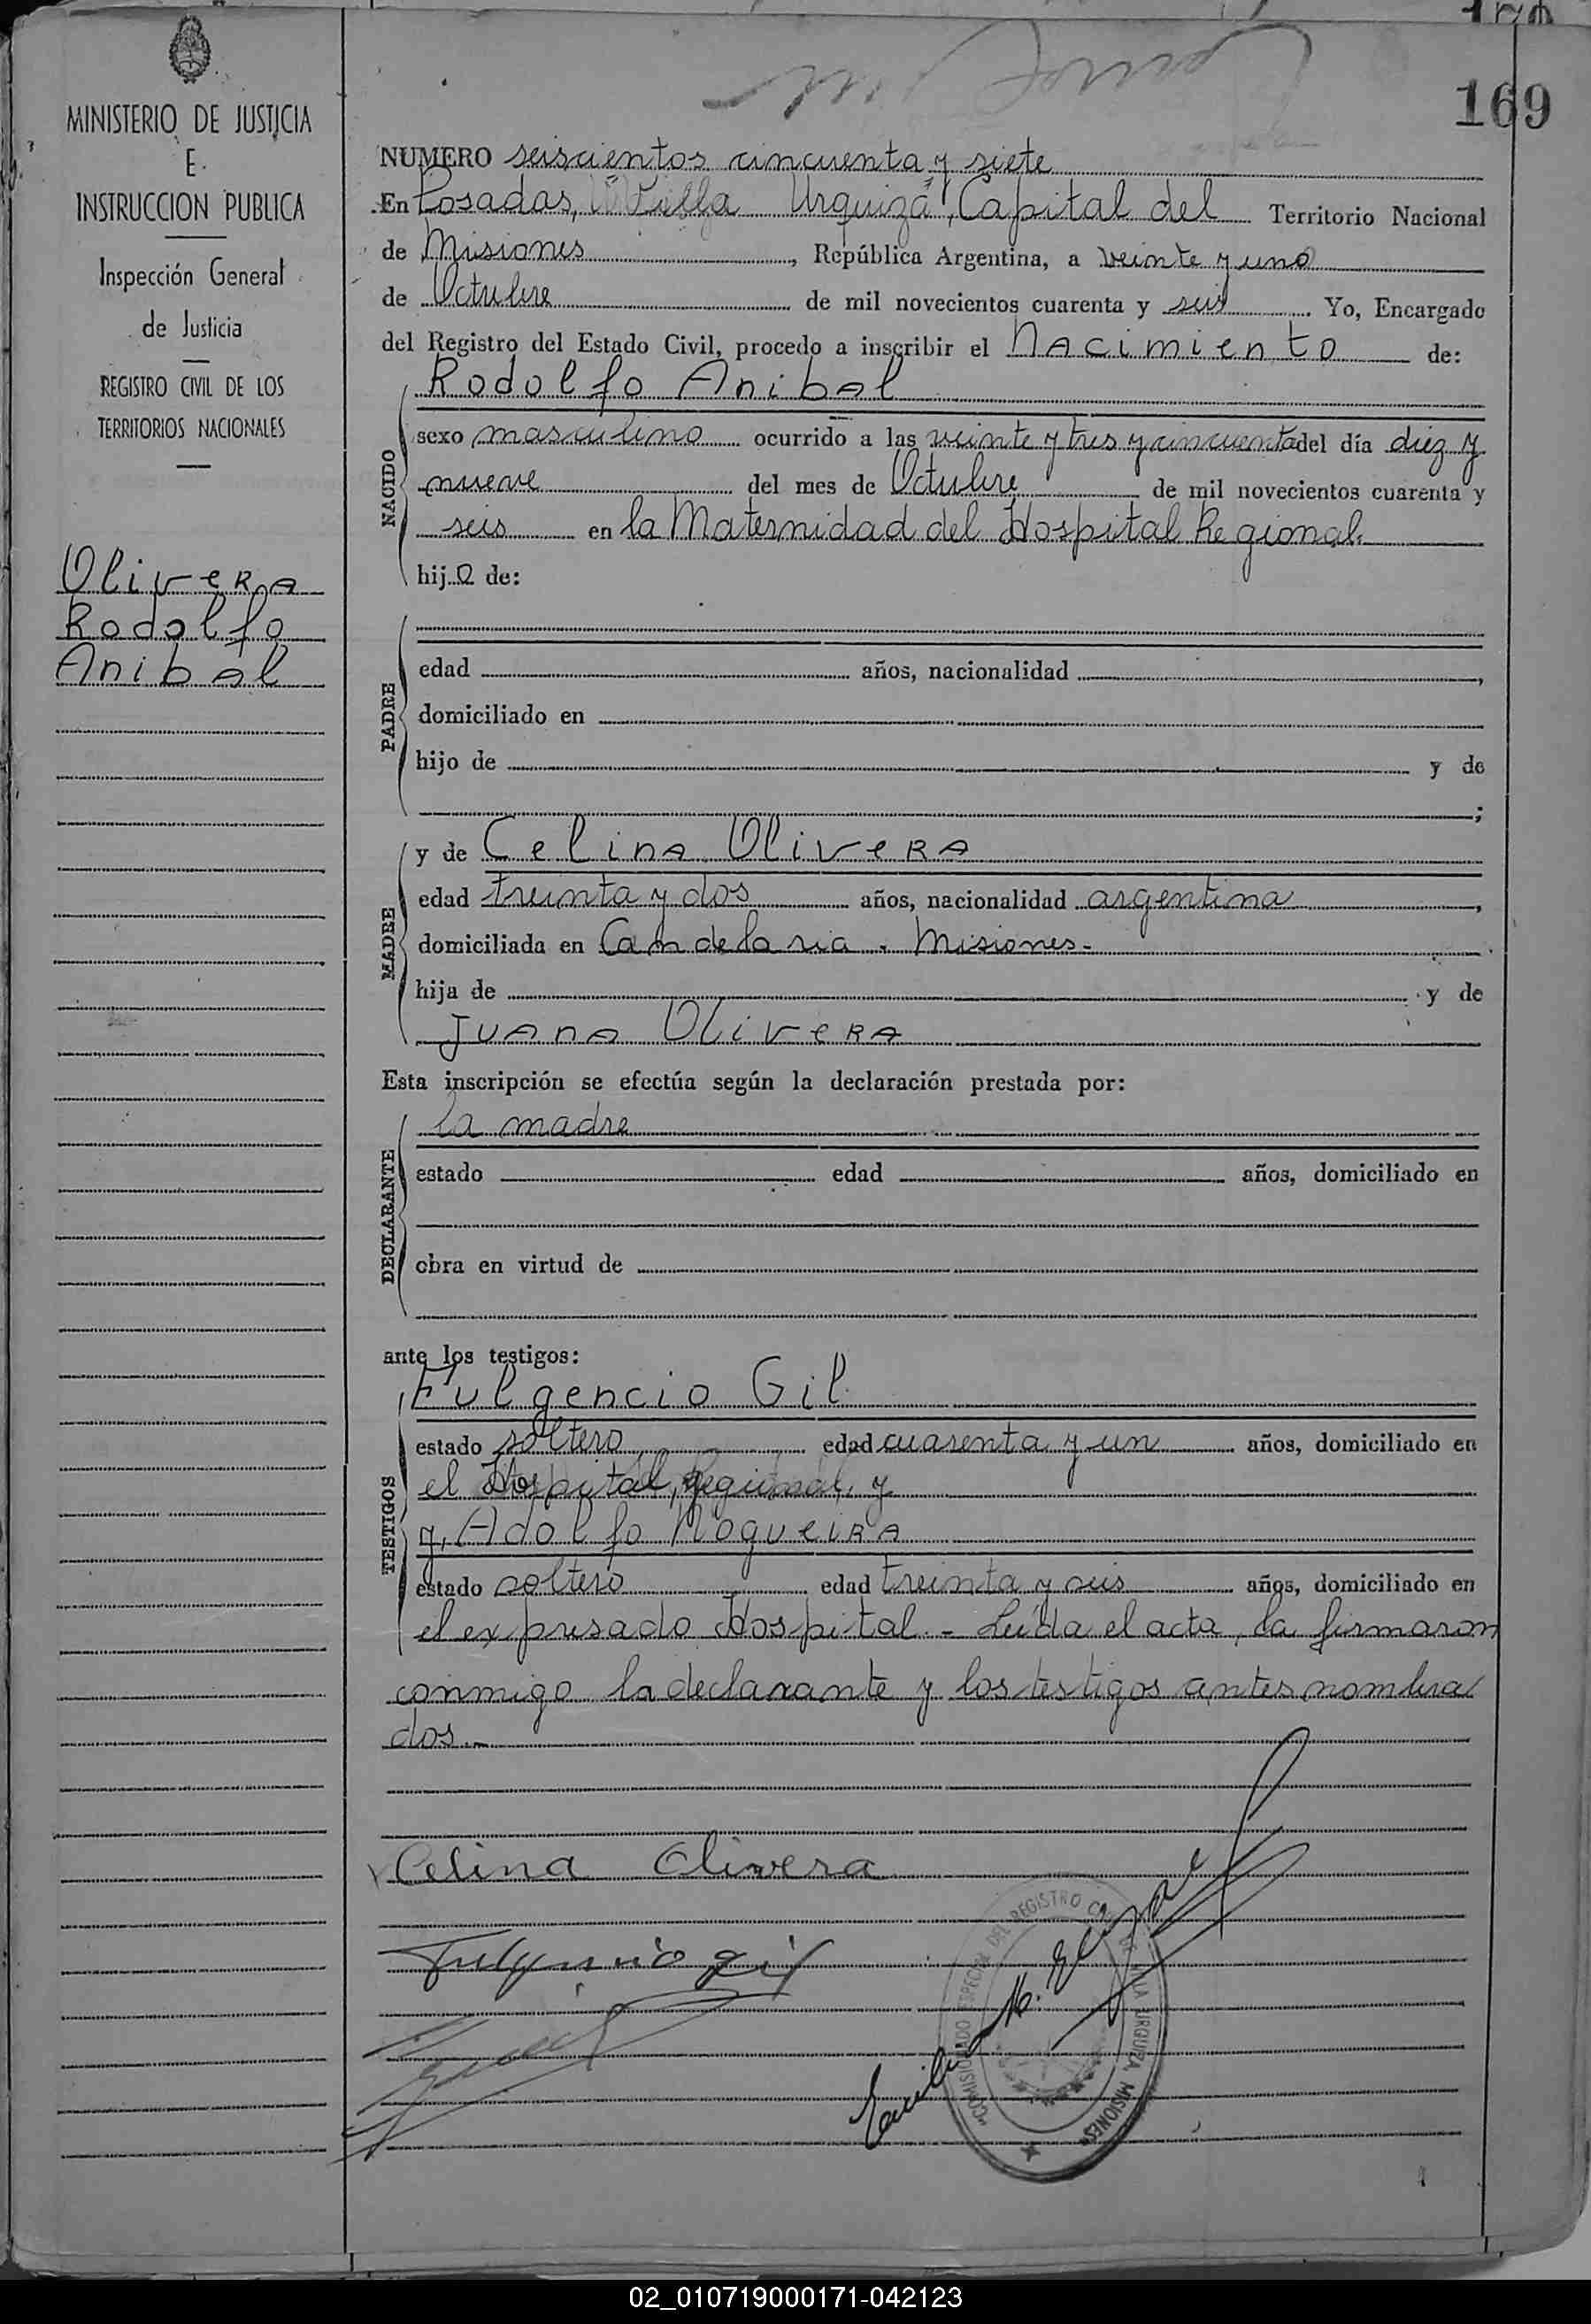 169
MINISTERIO DE JUSTICIA
E
INSTRUCCION PUBLICA
Inspección General
de Justicia
REGISTRO CIVIL DE LOS
TERRITORIOS NACIONALES
Olivera
Rodolfo
Anibal
NUMERO seiscientos cincuenta y siete
En Posadas, "Villa Urquiza", Capital del Territorio Nacional
de Misiones, República Argentina, a veinte y uno
de Octubre de mil novecientos cuarenta y seis. Yo, Encargado
del Registro del Estado Civil, procedo a inscribir el Nacimiento de:
Rodolfo Anibal
NACIDO
sexo masculino ocurrido a las veinte y tres y cincuenta del día diez y
nueve del mes de Octubre de mil novecientos cuarenta y
seis en la Maternidad del Hospital Regional.
hijo de:
PADRE
edad años, nacionalidad ,
domiciliado en
hijo de y de
;
MADRE
y de Celina Olivera
edad treinta y dos años, nacionalidad argentina,
domiciliada en Candelaria - Misiones.-
hija de y de
Juana Olivera
Esta inscripción se efectúa según la declaración prestada por:
DECLARANTE
la madre
estado edad años, domiciliado en
obra en virtud de
ante los testigos:
TESTIGOS
Fulgencio Gil
estado soltero edad cuarenta y un años, domiciliado en
el Hospital Regional, y
y, Adolfo Nogueira
estado soltero edad treinta y seis años, domiciliado en
el expresado Hospital.- Leída el acta, la firmaron
conmigo la declarante y los testigos antes nombra
dos.-
Celina Olivera
Fulgencio Gil
COMISIONADO ESPECIAL DEL REGISTRO CIVIL DE VILLA URQUIZA MISIONES
02_010719000171-042123